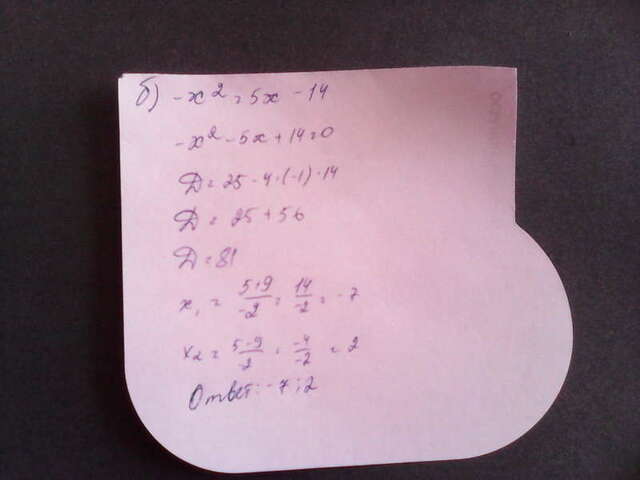 б) -x² = 5x - 14
-x² - 5x + 14 = 0
D = 25 - 4 · (-1) · 14
D = 25 + 56
D = 81
x₁ = 5+9/-2 = 14/-2 = -7
x₂ = 5-9/-2 = -4/-2 = 2
Ответ: -7; 2